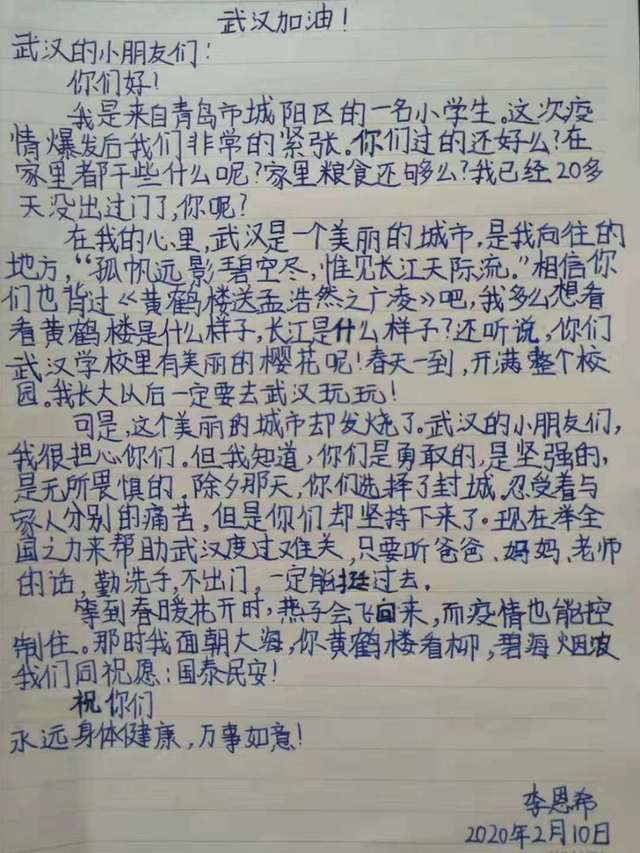 武汉加油！
武汉的小朋友们：
你们好！
我是来自青岛市城阳区的一名小学生。这次疫
情爆发后我们非常的紧张。你们过的还好么？在
家里都干些什么呢？家里粮食还够么？我已经20多
天没出过门了，你呢？
在我的心里，武汉是一个美丽的城市，是我向往的
地方，“孤帆远影碧空尽，惟见长江天际流。”相信你
们也背过《黄鹤楼送孟浩然之广凌》吧，我多么想看
看黄鹤楼是什么样子，长江是什么样子？还听说，你们
武汉学校里有美丽的樱花呢！春天一到，开满整个校
园。我长大以后一定要去武汉玩玩！
可是，这个美丽的城市却发烧了。武汉的小朋友们，
我很担心你们。但我知道，你们是勇敢的，是坚强的，
是无所畏惧的。除夕那天，你们选择了封城。忍受着与
家人分别的痛苦，但是你们却坚持下来了。现在举全
国之力来帮助武汉度过难关，只要听爸爸、妈妈、老师
的话，勤洗手，不出门，一定能挺过去。
等到春暖花开时，燕子会飞回来，而疫情也能控
制住。那时我面朝大海，你黄鹤楼看柳，碧海烟波
我们同祝愿：国泰民安！
祝你们
永远身体健康，万事如意！
李恩希
2020年2月10日